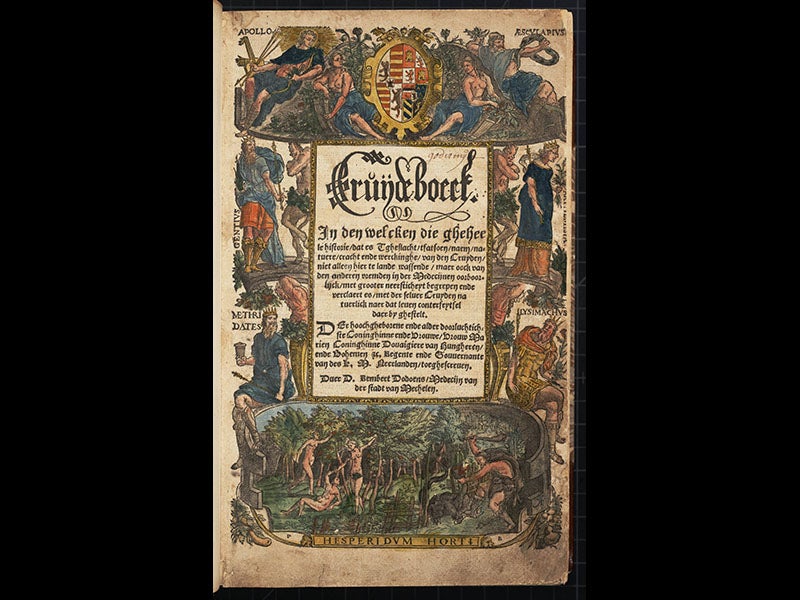 APOLLO
ÆSCVLAPIVS
Cruÿdeboeck.
GENTIVS
In den welcken die ghehee
le historie/dat es Tgheslacht/tfatsoen/naem/na-
tuere/cracht ende werckinghe/van den Cruyden/
niet alleen hier te lande wassende/maer oock van
den anderen vremden in der Medecijnen oorboor-
lijck/met grooter neersticheyt begrepen ende
verclaert es/met der seluer Cruyden na
tuerlick naer dat leuen conterfeytsel
daer by ghestelt.
METHRI
DATES
LYSIMACHVS
Der hoochgheborene ende alder doorluchtich-
ste Coninghinne ende Vrouwe/Vrouw Ma
rien Coninghinne Douaigiere van Hungheren/
ende Bohemen ꝛc. Regente ende Gouuernante
van des K. M. Neerlanden/toegheschreuen.
Duer D. Rembert Dodoens/Medecijn van
der stadt van Mechelen.
P A
HESPERIDVM HORTI